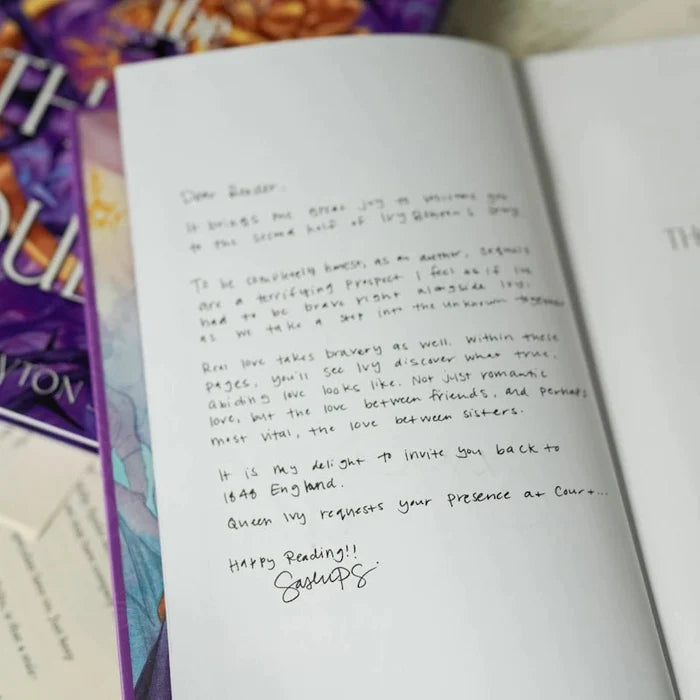 the
TH
OUL
YTON
Dear Reader,
It brings me great joy to welcome you
to the second half of Ivy Benton's story
To be completely honest, as an author, sequels
are a terrifying prospect I feel as if I've
had to be brave right alongside Ivy,
as we take a step into the unknown together
Real love takes bravery as well. Within these
pages, you'll see Ivy discover what true,
abiding love looks like. Not just romantic
love, but the love between friends, and perhaps
most vital, the love between sisters.
It is my delight to invite you back to
1848 England.
Queen Ivy requests your presence at Court...
Happy Reading!!
TH